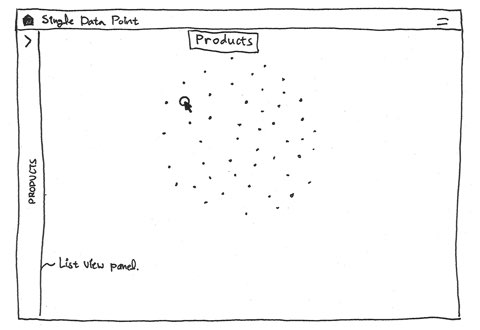 Single Data Point
Products
PRODUCTS
List view panel.